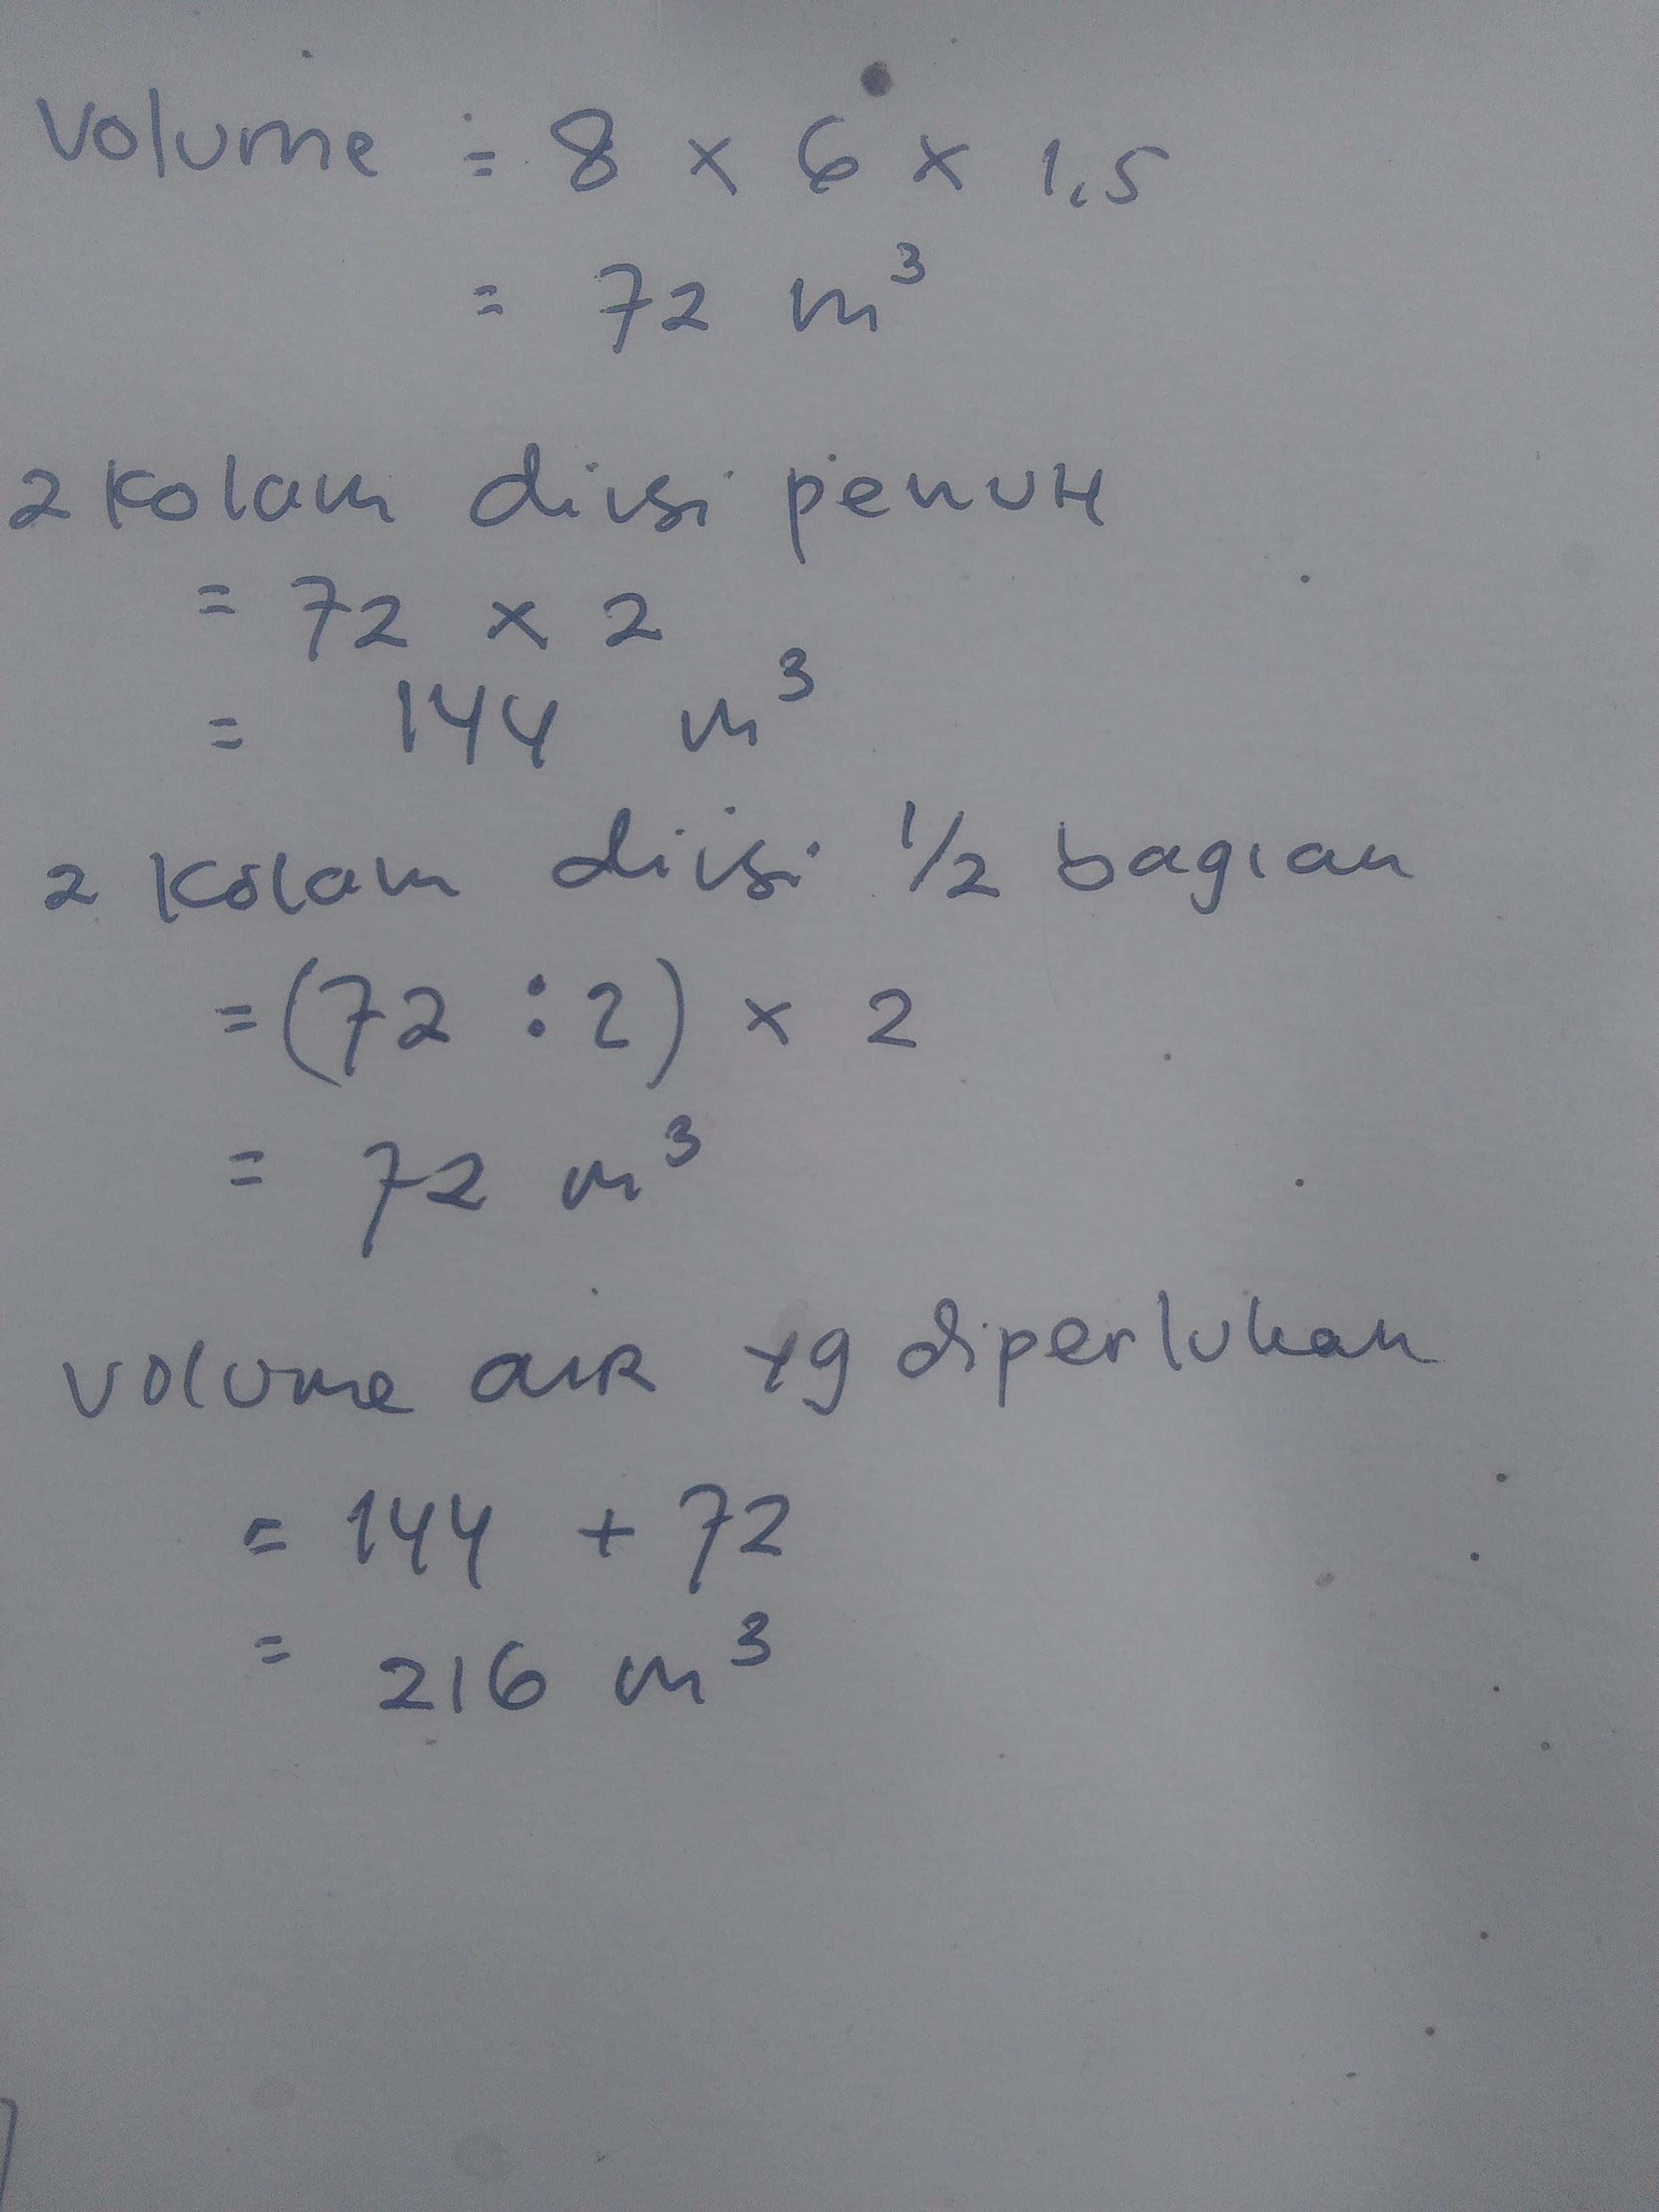 Volume = 8 x 6 x 1,5
= 72 m³
2 Kolam diisi penuh
= 72 x 2
= 144 m³
2 Kolam diisi 1/2 bagian
= (72 : 2) x 2
= 72 m³
Volume air yg diperlukan
= 144 + 72
= 216 m³